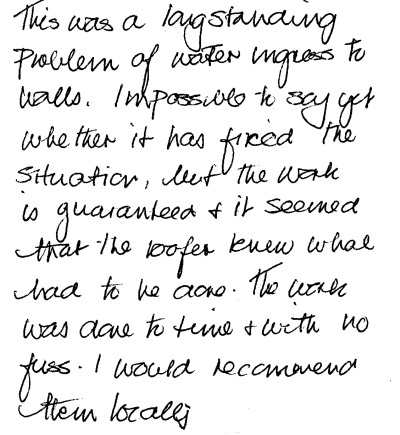 This was a longstanding
problem of water ingress to
walls. Impossible to say yet
whether it has fixed the
situation, but the work
is guaranteed & it seemed
that the roofer knew what
had to be done. The work
was done to time & with no
fuss. I would recommend
them locally